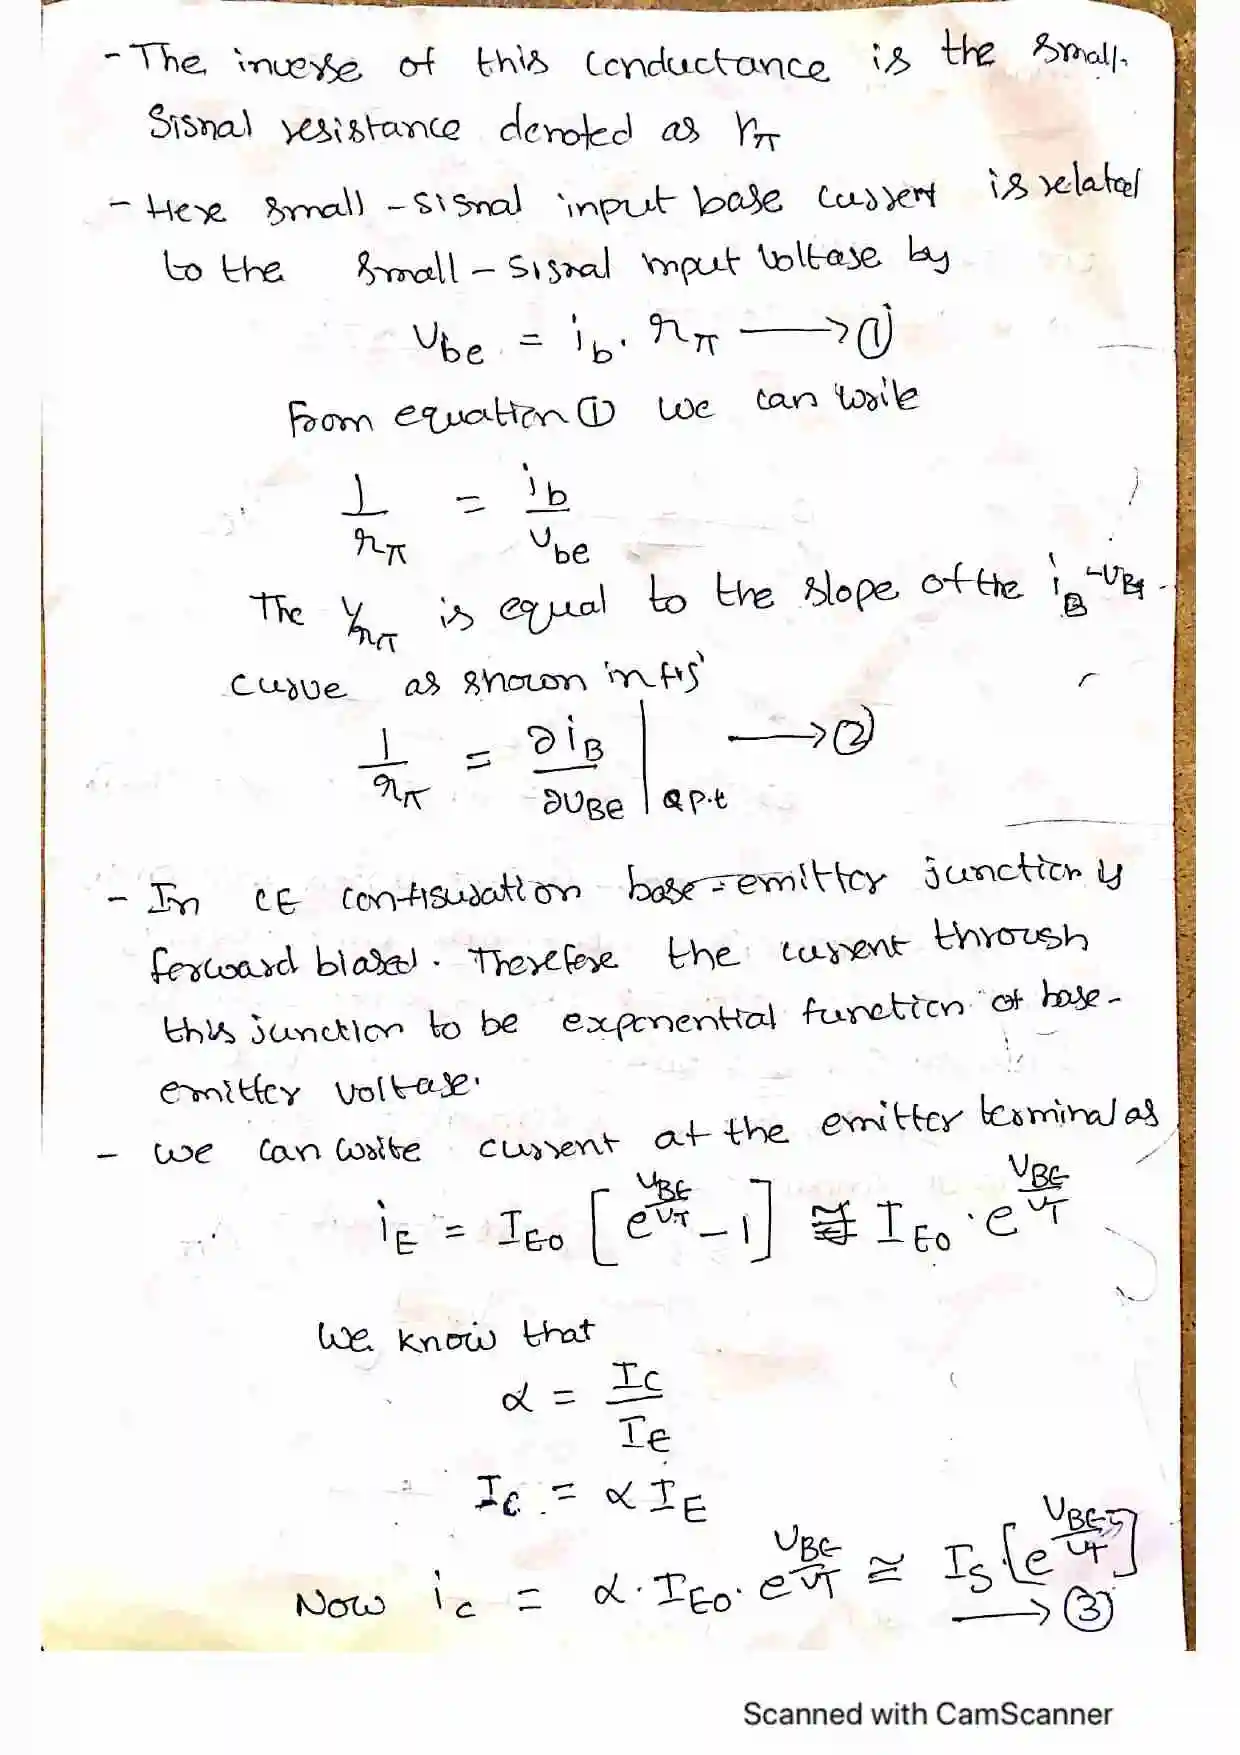 - The inverse of this conductance is the small-
signal resistance denoted as rπ
- Here small-signal input base current is related
to the small-signal input voltage by
Vbe = ib. rπ ⟶ ①
From equation ① we can write
1/rπ = ib/Vbe
The 1/rπ is equal to the slope of the iB-VBE
curve as shown in fig
1/rπ = ∂iB/∂VBE | Q p.t ⟶ ②
- In CE configuration base-emitter junction is
forward biased. Therefore the current through
this junction to be exponential function of base-
emitter voltage.
- We can write current at the emitter terminal as
iE = IEO [e^(VBE/VT) - 1] ≅ IEO . e^(VBE/VT)
We know that
α = IC/IE
IC = α IE
Now ic = α . IEO . e^(VBE/VT) ≅ IS . [e^(VBE/VT)]
⟶ ③
Scanned with CamScanner